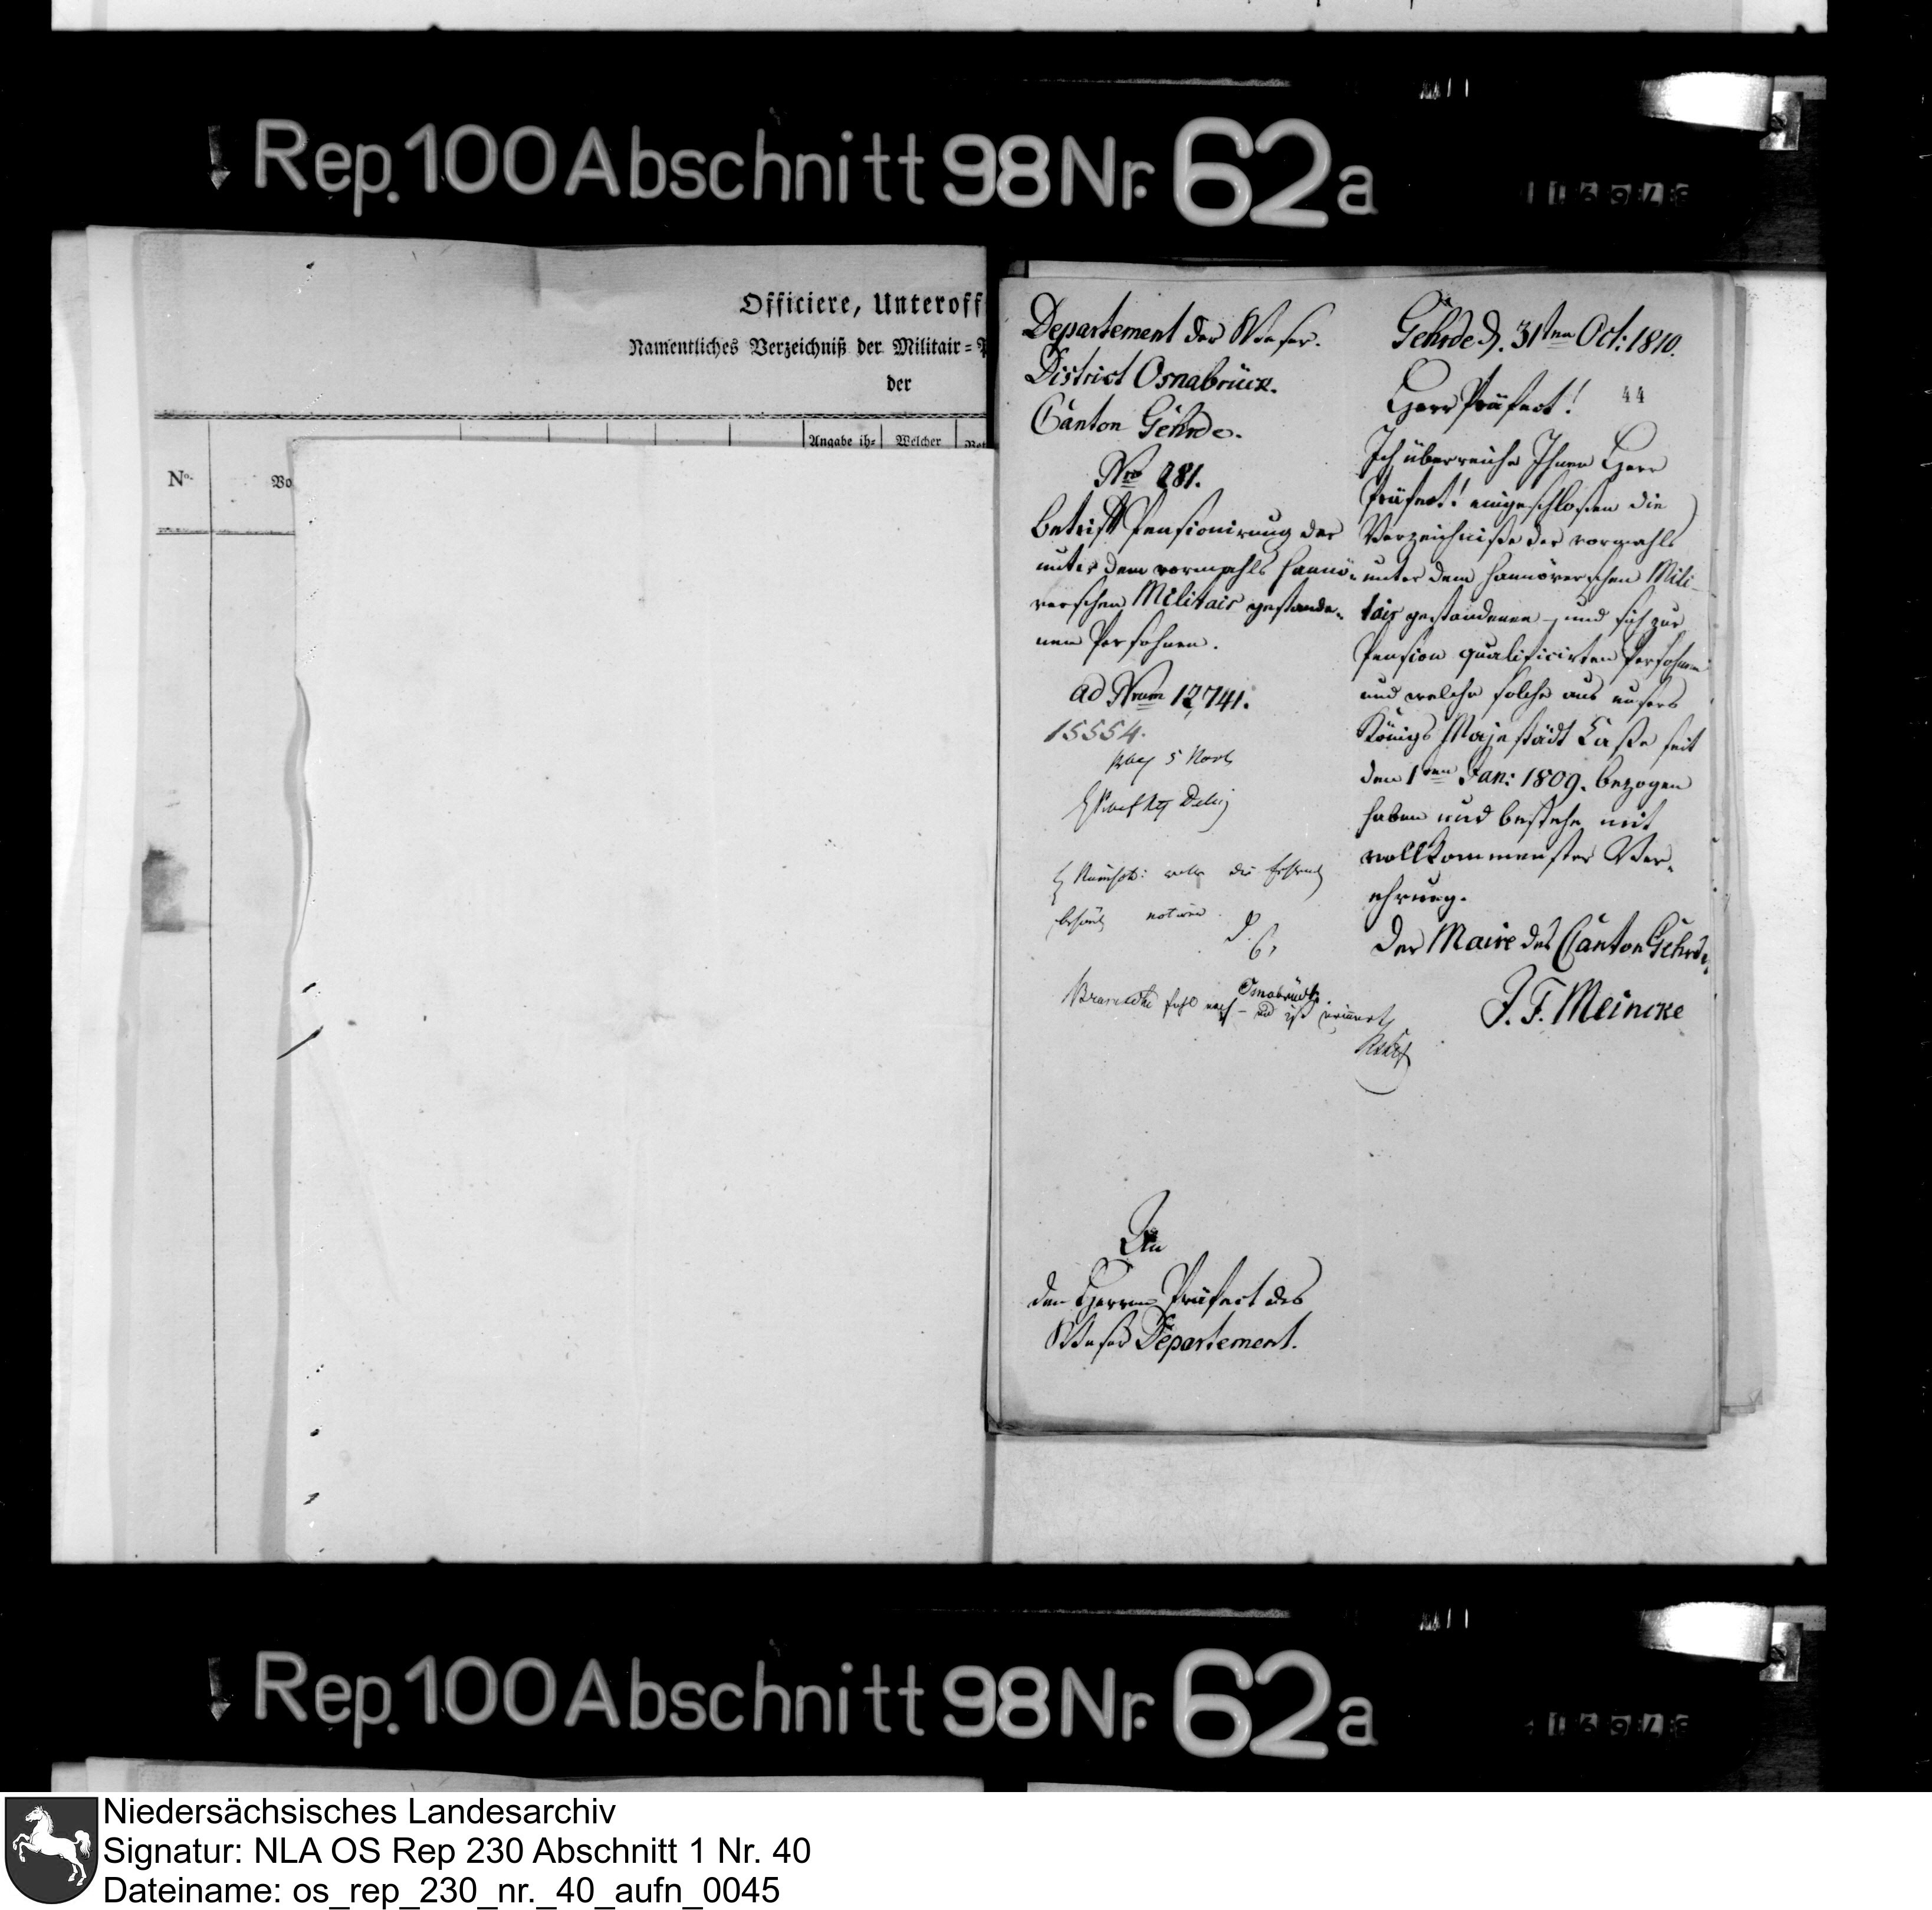 Rep. 100 Abschnitt 98 Nr. 62a
Officiere, Unteroff
Namentliches Verzeichniß der Militair=P
der
Angabe ih=
Welcher
No.
Vo
Departement der Weser.
District Osnabrück.
Canton Gehrde.
Nro 281.
Betrift Pensionirung der
unter dem vormahls hannö-
verschen Militair gestande-
nen Persohnen.
ad Nrum 12,741.
15554.
5 Nov
notiren
Osnabrück.
Bramsche fehlt noch – und ist erinnert
An
den Herren Präfect des
Weser Departement.
Gehrde d. 31ten Oct: 1810.
44
Herr Präfect!
Ich überreiche Ihnen Herr
Präfect! eingeschloßen die
Verzeichniße der vormahls
unter dem hannöverschen Mili-
tair gestandenen – und sich zur
Pension qualificirten Persohnen
und welche solche aus unsers
Königs Majestädt Caße seit
den 1ten Jan: 1809. bezogen
haben und bestehe mit
vollkommenster Ver-
ehrung.
Der Maire des Canton Gehrde
J. F. Meincke
Rep. 100 Abschnitt 98 Nr. 62a
Niedersächsisches Landesarchiv
Signatur: NLA OS Rep 230 Abschnitt 1 Nr. 40
Dateiname: os_rep_230_nr._40_aufn_0045